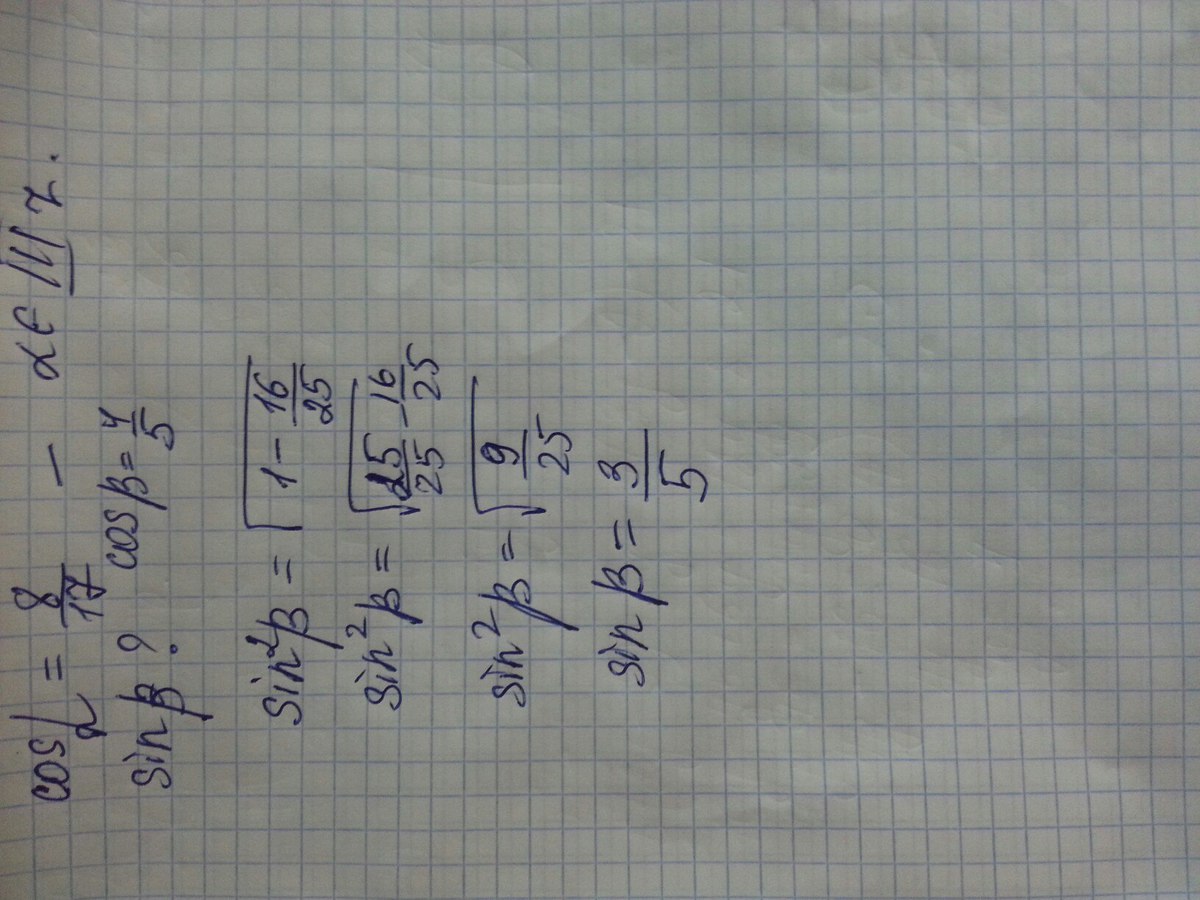 cos α = 8/17 — α ∈ III ч.
sin β ? cos β = 4/5
sin²β = √(1 − 16/25)
sin²β = √(25/25 − 16/25)
sin²β = √(9/25)
sin β = 3/5